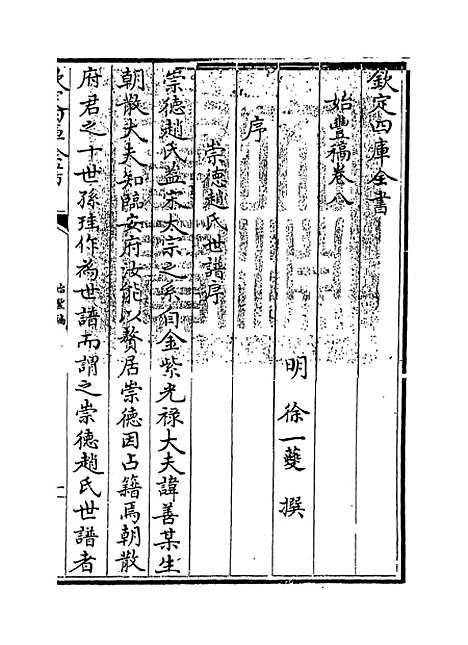 欽定四庫全書
始豐稿卷八
明 徐一夔 撰
序
崇德趙氏世譜序
崇德趙氏蓋宋太宗之系自金紫光祿大夫諱善某生
朝散大夫知臨安府汝能以贅居崇德因占籍焉朝散
府君之十世孫珪作為世譜而謂之崇德趙氏世譜者
始豐稿
一